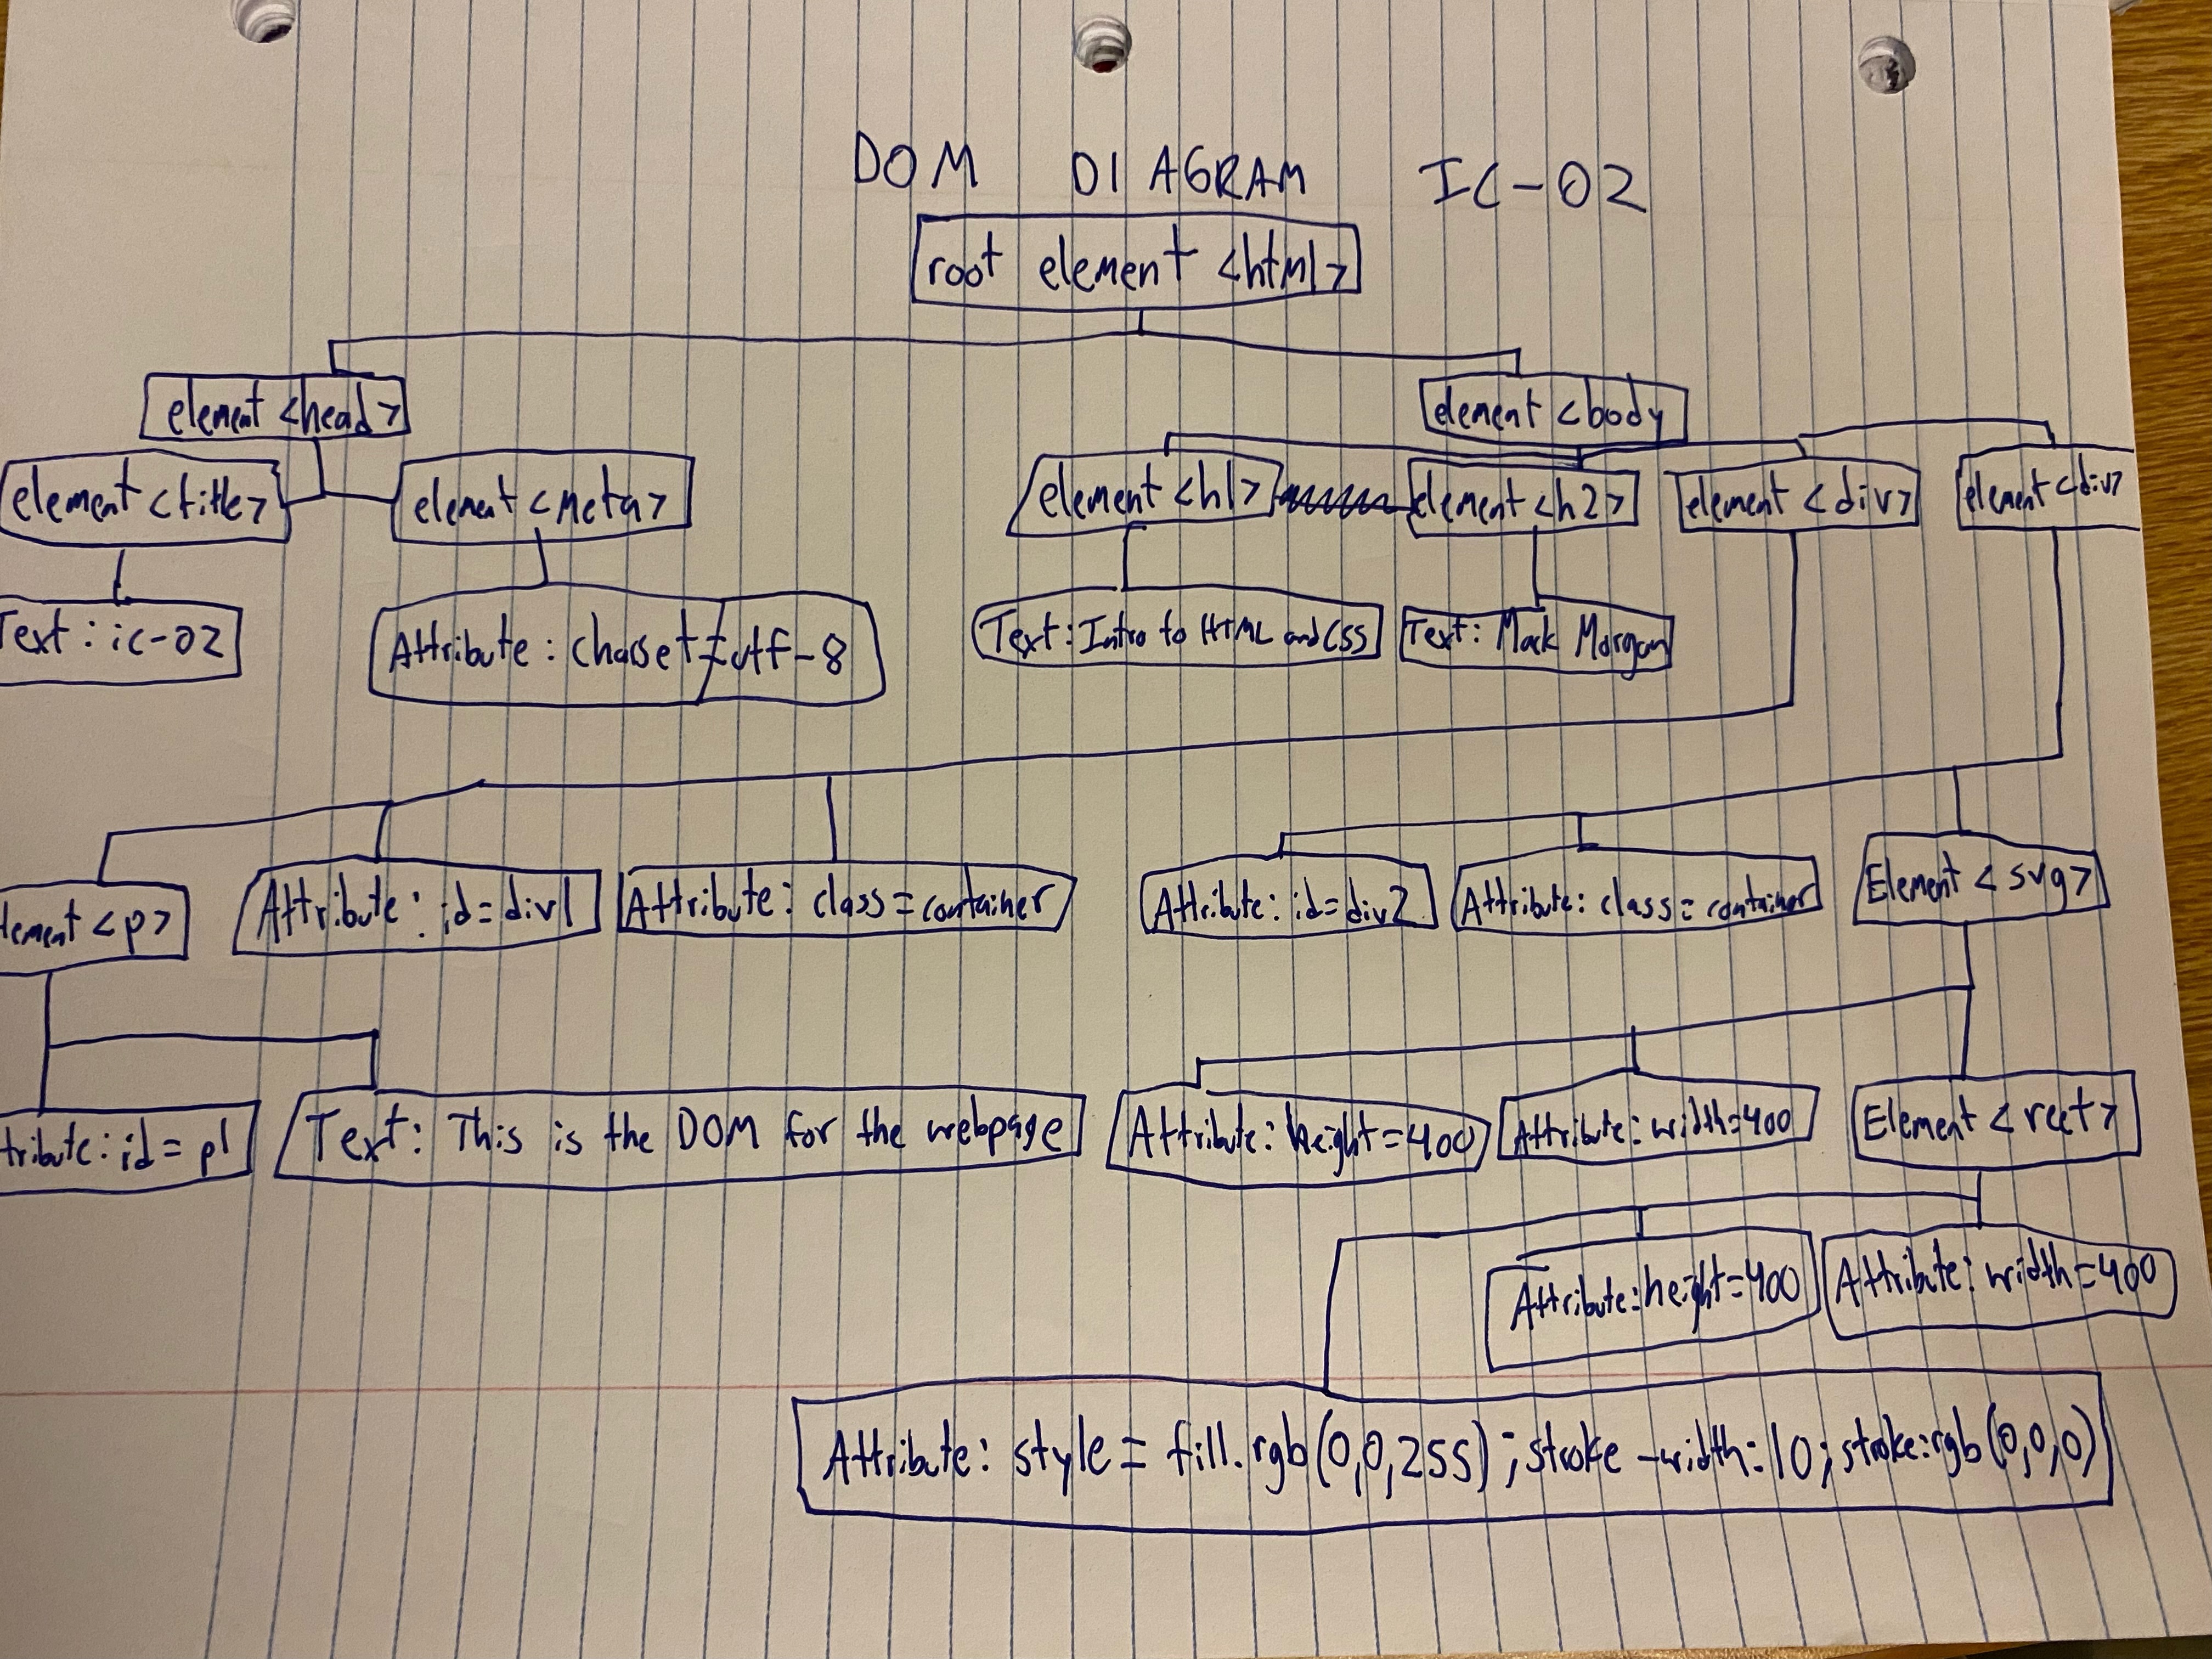 DOM DIAGRAM IC-02
root element <html>
element <head>
element <body
element <title>
element <meta>
element <h1>
element <h2>
element <div>
element <div>
Text: ic-02
Attribute: charset=utf-8
Text: Intro to HTML and CSS
Text: Mack Morgan
lement <p>
Attribute: id=div1
Attribute: class=container
Attribute: id=div2
Attribute: class=container
Element <svg>
tribute: id=p1
Text: This is the DOM for the webpage
Attribute: height=400
Attribute: width=400
Element <rect>
Attribute: height=400
Attribute: width=400
Attribute: style= fill.rgb(0,0,255);stroke-width:10;stroke:rgb(0,0,0)